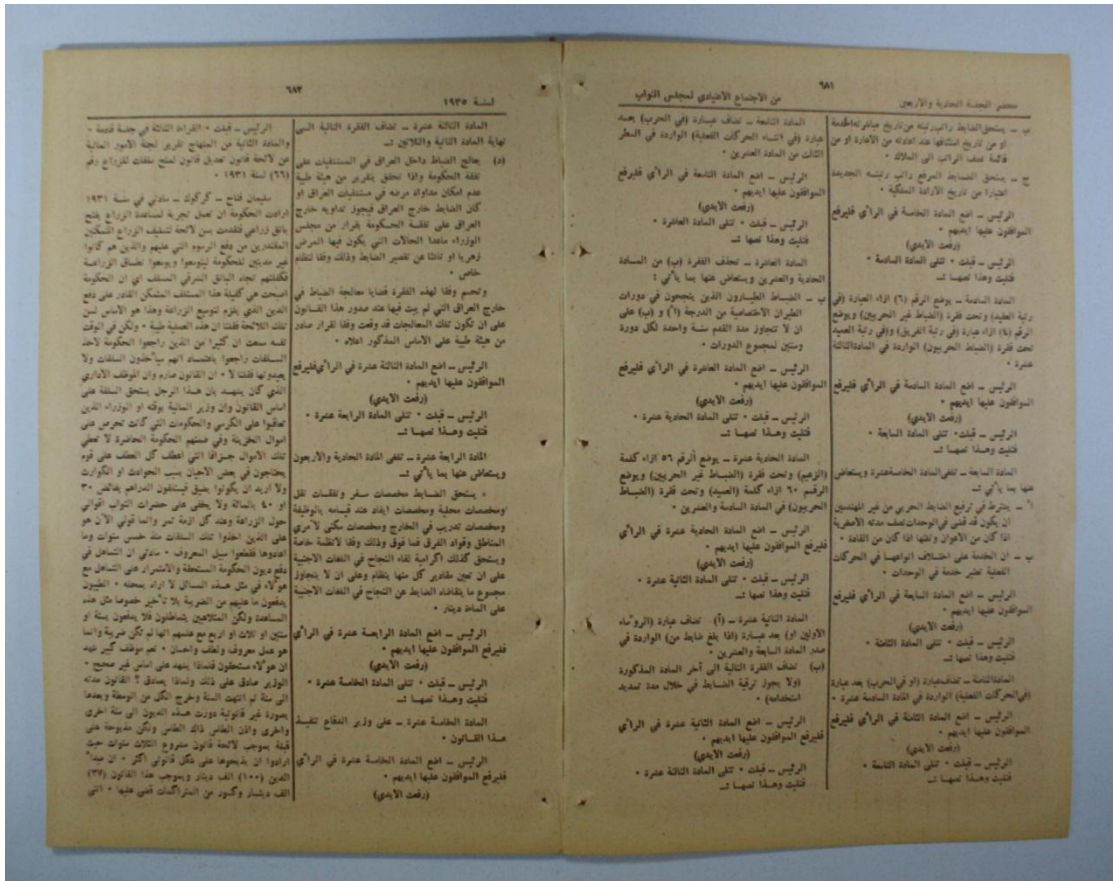 ٦٨١
محضر الجلسة الحادية والاربعين
من الاجتماع الاعتيادي لمجلس النواب
ب ــ يستحق الضابط راتب رتبته من تاريخ مباشرته الخدمة
او من تاريخ استئنافها عند اعادته من الاعارة او من
قائمة نصف الراتب الى الملاك ٠
ج ــ يستحق الضابط المرفع راتب رتبته الجديدة
اعتبارا من تاريخ الارادة الملكية ٠
الرئيس ــ اضع المادة الخامسة في الرأي فليرفع
الموافقون عليها ايديهم ٠
(رفعت الايدي)
الرئيس ــ قبلت ٠ تتلى المادة السادسة ٠
فتليت وهذا نصها :ــ
المادة السادسة ــ يوضع الرقم (٦) ازاء العبارة (في
رتبة العقيد) وتحت فقرة (الضباط غير الحربيين) ويوضع
الرقم (٤) ازاء عبارة (في رتبة الفريق) و(في رتبة العميد
تحت فقرة (الضباط الحربيون) الواردة في المادة الثالثة
عشرة ٠
الرئيس ــ اضع المادة السادسة في الرأي فليرفع
الموافقون عليها ايديهم ٠
(رفعت الايدي)
الرئيس ــ قبلت ٠ تتلى المادة السابعة ٠
فتليت وهذا نصها :ــ
المادة السابعة ــ تلغى المادة الخامسة عشرة ويستعاض
عنها بما يأتي :ــ
أ ــ يشترط في ترفيع الضابط الحربي من غير المهندسين
ان يكون قد قضى في الوحدات نصف مدته الاصغرية
اذا كان من الاعوان وثلثها اذا كان من القادة ٠
ب ــ ان الخدمة على اختلاف انواعها في الحركات
الفعلية تعتبر خدمة في الوحدات ٠
الرئيس ــ اضع المادة السابعة في الرأي فليرفع
الموافقون عليها ايديهم ٠
(رفعت الايدي)
الرئيس ــ قبلت ٠ تتلى المادة الثامنة ٠
فتليت وهذا نصها :ــ
المادة الثامنة ــ تضاف عبارة (او في الحرب) بعد عبارة
(في الحركات الفعلية) الواردة في المادة السادسة عشرة ٠
الرئيس ــ اضع المادة الثامنة في الرأي فليرفع
الموافقون عليها ايديهم ٠
(رفعت الايدي)
الرئيس ــ قبلت ٠ تتلى المادة التاسعة ٠
فتليت وهذا نصها :ــ
المادة التاسعة ــ تضاف عبارة (في الحرب) بعد
عبارة (في اثناء الحركات الفعلية) الواردة في السطر
الثالث من المادة العشرين ٠
الرئيس ــ اضع المادة التاسعة في الرأي فليرفع
الموافقون عليها ايديهم ٠
(رفعت الايدي)
الرئيس ــ قبلت ٠ تتلى المادة العاشرة ٠
فتليت وهذا نصها :ــ
المادة العاشرة ــ تحذف الفقرة (ب) من المادة
الحادية والعشرين ويستعاض عنها بما يأتي :
ب ــ الضباط الطيارون الذين ينجحون في دورات
الطيران الاختصاصية من الدرجة (أ) و (ب) على
ان لا تتجاوز مدة القدم سنة واحدة لكل دورة
وسنتين لمجموع الدورات ٠
الرئيس ــ اضع المادة العاشرة في الرأي فليرفع
الموافقون عليها ايديهم ٠
(رفعت الايدي)
الرئيس ــ قبلت ٠ تتلى المادة الحادية عشرة ٠
فتليت وهذا نصها :ــ
المادة الحادية عشرة ــ يوضع الرقم ٥٦ ازاء كلمة
(الزعيم) وتحت فقرة (الضباط غير الحربيين) ويوضع
الرقم ٦٠ ازاء كلمة (العميد) وتحت فقرة (الضباط
الحربيون) في المادة السادسة والعشرين ٠
الرئيس ــ اضع المادة الحادية عشرة في الرأي
فليرفع الموافقون عليها ايديهم ٠
(رفعت الايدي)
الرئيس ــ قبلت ٠ تتلى المادة الثانية عشرة ٠
فتليت وهذا نصها :ــ
المادة الثانية عشرة ــ (أ) تضاف عبارة (الرؤساء
الاولين او) بعد عبارة (اذا بلغ ضابط من) الواردة في
صدر المادة السابعة والعشرين ٠
(ب) تضاف الفقرة التالية الى آخر المادة المذكورة
(ولا يجوز ترقية الضابط في خلال مدة تمديد
استخدامه) ٠
الرئيس ــ اضع المادة الثانية عشرة في الرأي
فليرفع الموافقون عليها ايديهم ٠
(رفعت الايدي)
الرئيس ــ قبلت ٠ تتلى المادة الثالثة عشرة ٠
فتليت وهذا نصها :ــ
٦٨٢
لسنة ١٩٣٥
المادة الثالثة عشرة ــ تضاف الفقرة التالية الى
نهاية المادة الثانية والثلاثين :ــ
(د) يعالج الضابط داخل العراق في المستشفيات على
نفقة الحكومة واذا تحقق بتقرير من هيئة طبية
عدم امكان مداواة مرضه في مستشفيات العراق او
كان الضابط خارج العراق فيجوز تداويه خارج
العراق على نفقة الحكومة بقرار من مجلس
الوزراء ماعدا الحالات التي يكون فيها المرض
زهريا او ناشئا عن تقصير الضابط وذلك وفقا لنظام
خاص ٠
وتحسم وفقا لهذه الفقرة قضايا معالجة الضباط في
خارج العراق التي لم يبت فيها عند صدور هذا القانون
على ان تكون تلك المعالجات قد وقعت وفقا لقرار صادر
من هيئة طبية على الاساس المذكور اعلاه ٠
الرئيس ــ اضع المادة الثالثة عشرة في الرأي فليرفع
الموافقون عليها ايديهم ٠
(رفعت الايدي)
الرئيس ــ قبلت ٠ تتلى المادة الرابعة عشرة ٠
فتليت وهذا نصها :ــ
المادة الرابعة عشرة ــ تلغى المادة الحادية والاربعون
ويستعاض عنها بما يأتي :ــ
« يستحق الضابط مخصصات سفر ونفقات نقل
ومخصصات محلية ومخصصات ايفاد عند قيامه بالوظيفة
ومخصصات تدريب في الخارج ومخصصات سكنى لآمري
المناطق وقواد الفرق فما فوق وذلك وفقا لانظمة خاصة
ويستحق كذلك اكرامية لقاء النجاح في اللغات الاجنبية
على ان تعين مقادير كل منها بنظام وعلى ان لا يتجاوز
مجموع ما يتقاضاه الضابط عن النجاح في اللغات الاجنبية
على المائة دينار ٠
الرئيس ــ اضع المادة الرابعة عشرة في الرأي
فليرفع الموافقون عليها ايديهم ٠
(رفعت الايدي)
الرئيس ــ قبلت ٠ تتلى المادة الخامسة عشرة ٠
فتليت وهذا نصها :ــ
المادة الخامسة عشرة ــ على وزير الدفاع تنفيذ
هذا القانون ٠
الرئيس ــ اضع المادة الخامسة عشرة في الرأي
فليرفع الموافقون عليها ايديهم ٠
(رفعت الايدي)
الرئيس ــ قبلت ٠ القراءة الثالثة في جلسة قادمة ٠
والمادة الثانية من المنهاج تقرير لجنة الامور المالية
عن لائحة قانون تعديل قانون لمنح سلفات للزراع رقم
(٦٦) لسنة ١٩٣١ ٠
سليمان فتاح ــ كركوك ــ سادتي في سنة ١٩٣١
ارادت الحكومة ان تعمل تجربة لمساعدة الزراع بفتح
بانق زراعي فقدمت بسن لائحة لتسليف الزراع المتمكنين
المقتدرين من دفع الرسوم التي عليهم والذين هم كانوا
غير مدينين للحكومة ليتوسعوا ويوسعوا نطاق الزراعة
فكفلتهم تجاه البانق الشرقي المسلف اي ان الحكومة
اصبحت هي كفيلة هذا المستلف المتمكن القادر على دفع
الدين الذي يلزم لتوسيع الزراعة وهذا هو الاساس لسن
تلك اللائحة فقلنا ان هذه العملية طيبة ٠ ولكن في الوقت
نفسه سمعت ان كثيرا من الذين راجعوا الحكومة لاخذ
السلفات راجعوا باعتماد انهم سيأخذون السلفات ولا
يعيدونها فقلنا لا ٠ ان القانون صارم وان الموظف الاداري
الذي كان يشهد بان هذا الرجل يستحق السلفة على
اساس القانون وان وزير المالية بوقته او الوزراء الذين
تعاقبوا على الكرسي والحكومات التي كانت تحرص على
اموال الخزينة وفي ضمنهم الحكومة الحاضرة لا تعطي
تلك الاموال جزافا انني اعطف كل العطف على قوم
يحتاجون في بعض الاحيان بسبب الحوادث او الكوارث
ولا اريد ان يكونوا بضيق ليستلفون الدراهم بفائض ٣٠
او ٤٠ بالمائة ولا يخفى على حضرات النواب اقوالي
حول الزراعة وعند كل ازمة تمر وانما قولي الآن هو
على الذين اخذوا تلك السلفات منذ خمس سنوات وما
اعادوها فقطعوا سبل المعروف ٠ سادتي ان التساهل في
دفع ديون الحكومة المستحقة والاستمرار على التساهل مع
هؤلاء في مثل هذه المسائل لا اراه بمحله ٠ الطيبون
يدفعون ما عليهم من الضريبة بلا تأخير خصوصا مثل هذه
المساعدة ولكن المتلاعبين يتماطلون فلا يدفعون بسنة او
سنتين او ثلاث او اربع مع علمهم انها لم تكن ضريبة وانما
هو عمل معروف ولطف واحسان ٠ نعم موظف كبير شهد
ان هؤلاء مستحقون فلماذا يشهد على اساس غير صحيح ٠
الوزير صادق على ذلك ولماذا يصادق ؟ القانون مدته
الى سنة ثم انتهت السنة وخرج الكل من الوسطة وبعدها
بصورة غير قانونية دورت هذه الديون الى سنة اخرى
واخرى واذن الطاس ذاك الطاس ولكن مذبوحة على
قبلة بموجب لائحة قانون مشروع الثلاث سنوات حيث
ارادوا ان يذبحوها على شكل قانوني اكثر ٠ ان مبدأ
الدين (١٠٠) الف دينار وبموجب هذا القانون (٣٧)
الف دينار وكسور من المتراكمات قضى عليها ٠ انني